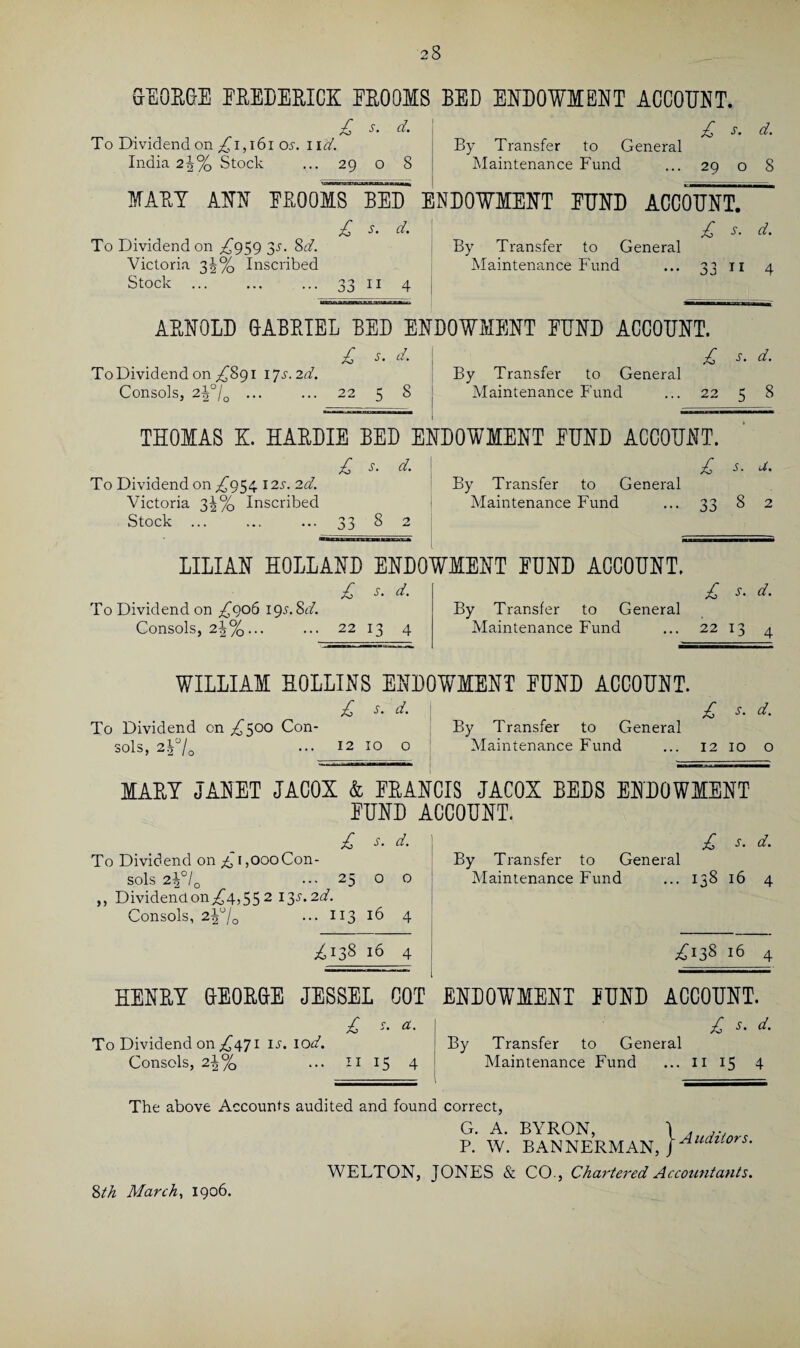 28
GEORGE FREDERICK FROOMS BED ENDOWMENT ACCOUNT.
£ s. d.
To Dividend on £1,161 0s. 11d.
India 2½% Stock ... 29 0 8
£ s. d.
By Transfer to General
Maintenance Fund ... 29 0 8
MARY ANN FROOMS BED ENDOWMENT FUND ACCOUNT.
£ s. d.
To Dividend on £959 3s. 8d.
Victoria 3½% Inscribed
Stock ... ... ... 33 11 4
£ s. d.
By Transfer to General
Maintenance Fund ... 33 11 4
ARNOLD GABRIEL BED ENDOWMENT FUND ACCOUNT.
£ s. d.
To Dividend on £891 17s. 2d.
Consols, 2½% ... ... 22 5 8
£ s. d.
By Transfer to General
Maintenance Fund ... 22 5 8
THOMAS K. HARDIE BED ENDOWMENT FUND ACCOUNT.
£ s. d.
To Dividend on £954 12s. 2d.
Victoria 3½% Inscribed
Stock ... ... ... 33 8 2
£ s. d.
By Transfer to General
Maintenance Fund ... 33 8 2
LILIAN HOLLAND ENDOWMENT FUND ACCOUNT.
£ s. d.
To Dividend on £906 19s. 8d.
Consols, 2½%... ... 22 13 4
£ s. d.
By Transfer to General
Maintenance Fund ... 22 13 4
WILLIAM HOLLINS ENDOWMENT FUND ACCOUNT.
£ s. d.
To Dividend on £500 Con-
sols, 2½% ... 12 10 0
£ s. d.
By Transfer to General
Maintenance Fund ... 12 10 0
MARY JANET JACOX & FRANCIS JACOX BEDS ENDOWMENT
FUND ACCOUNT.
£ s. d.
To Dividend on £1,000 Con-
sols 2½% ... 25 0 0
,, Dividend on £4,552 13s. 2d.
Consols, 2½% ... 113 16 4
£138 16 4
£ s. d.
By Transfer to General
Maintenance Fund ... 138 16 4
£138 16 4
HENRY GEORGE JESSEL COT ENDOWMENT FUND ACCOUNT.
£ s. d.
To Dividend on £471 1s. 10d.
Consols, 2½% ... 11 15 4
£ s. d.
By Transfer to General
Maintenance Fund ... 11 15 4
The above Accounts audited and found correct,
G. A. BYRON,
P. W. BANNERMAN, } Auditors.
WELTON, JONES & CO., Chartered Accountants.
8th March, 1906.